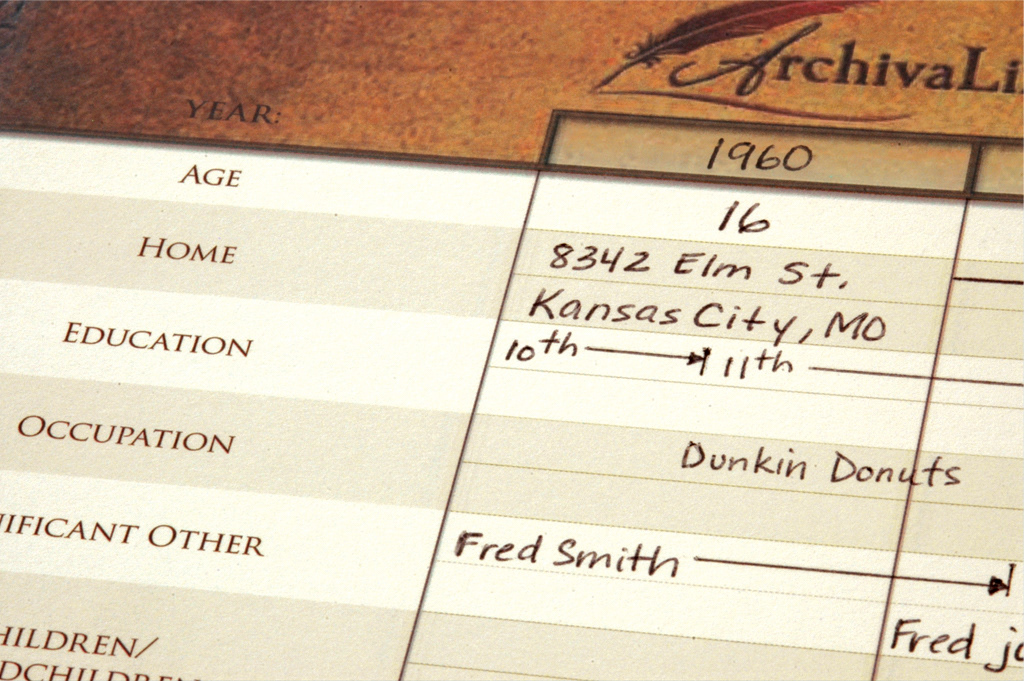 ArchivaLi
YEAR: 1960
AGE 16
HOME 8342 Elm St.
Kansas City, MO
EDUCATION 10th 11th
OCCUPATION Dunkin Donuts
NIFICANT OTHER Fred Smith
Fred ju
HILDREN/
DCHILDREN